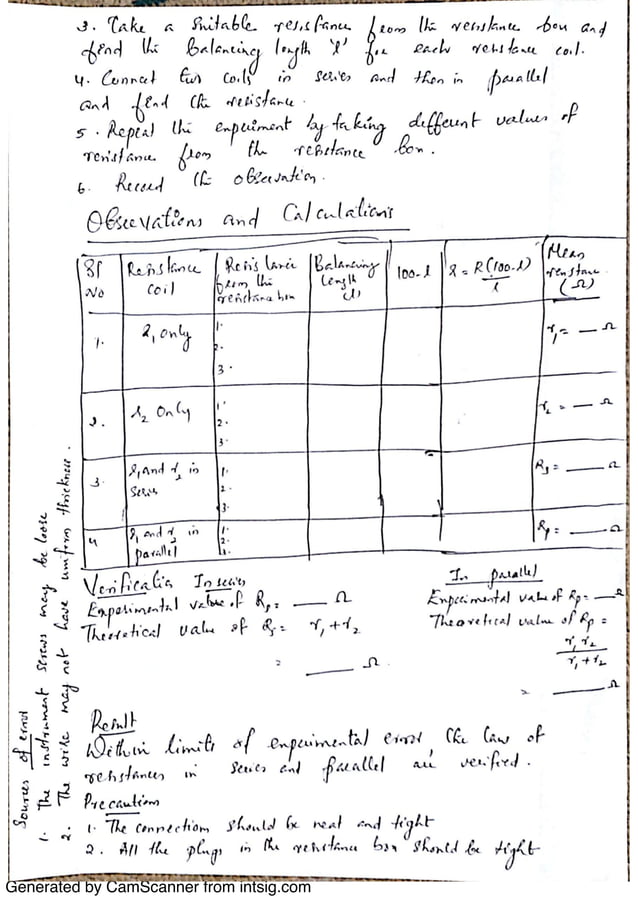 3. Take a suitable resistance from the resistance box and
find the balancing length 'l' for each resistance coil.
4. Connect two coils in series and then in parallel
and find the resistance.
5. Repeat the experiment by taking different values of
resistance from the resistance box.
6. Record the observation.
Observations and Calculations
Sl No
Resistance coil
Resistance from the resistance box
Balancing length (l)
100-l
r = R(100-l)/l
Mean resistance (Ω)
1. r₁ only 1. 2. 3. r₁ = __ Ω
2. r₂ only 1. 2. 3. r₂ = __ Ω
3. r₁ and r₂ in series 1. 2. 3. Rs = __ Ω
4 r₁ and r₂ in parallel 1. 2. 3. Rp = __ Ω
Verification In series
Experimental value of Rs = __ Ω
Theoretical value of Rs = r₁+r₂
= __ Ω
In parallel
Experimental value of Rp = __ Ω
Theoretical value of Rp =
r₁r₂
r₁+r₂
= __ Ω
Result
Within limits of experimental error, the law of
resistances in series and parallel are verified.
Precaution
1. The connection should be neat and tight
2. All the plugs in the resistance box should be tight
Sources of error
1. The instrument screws may be loose
2. The wire may not have uniform thickness.
Generated by CamScanner from intsig.com